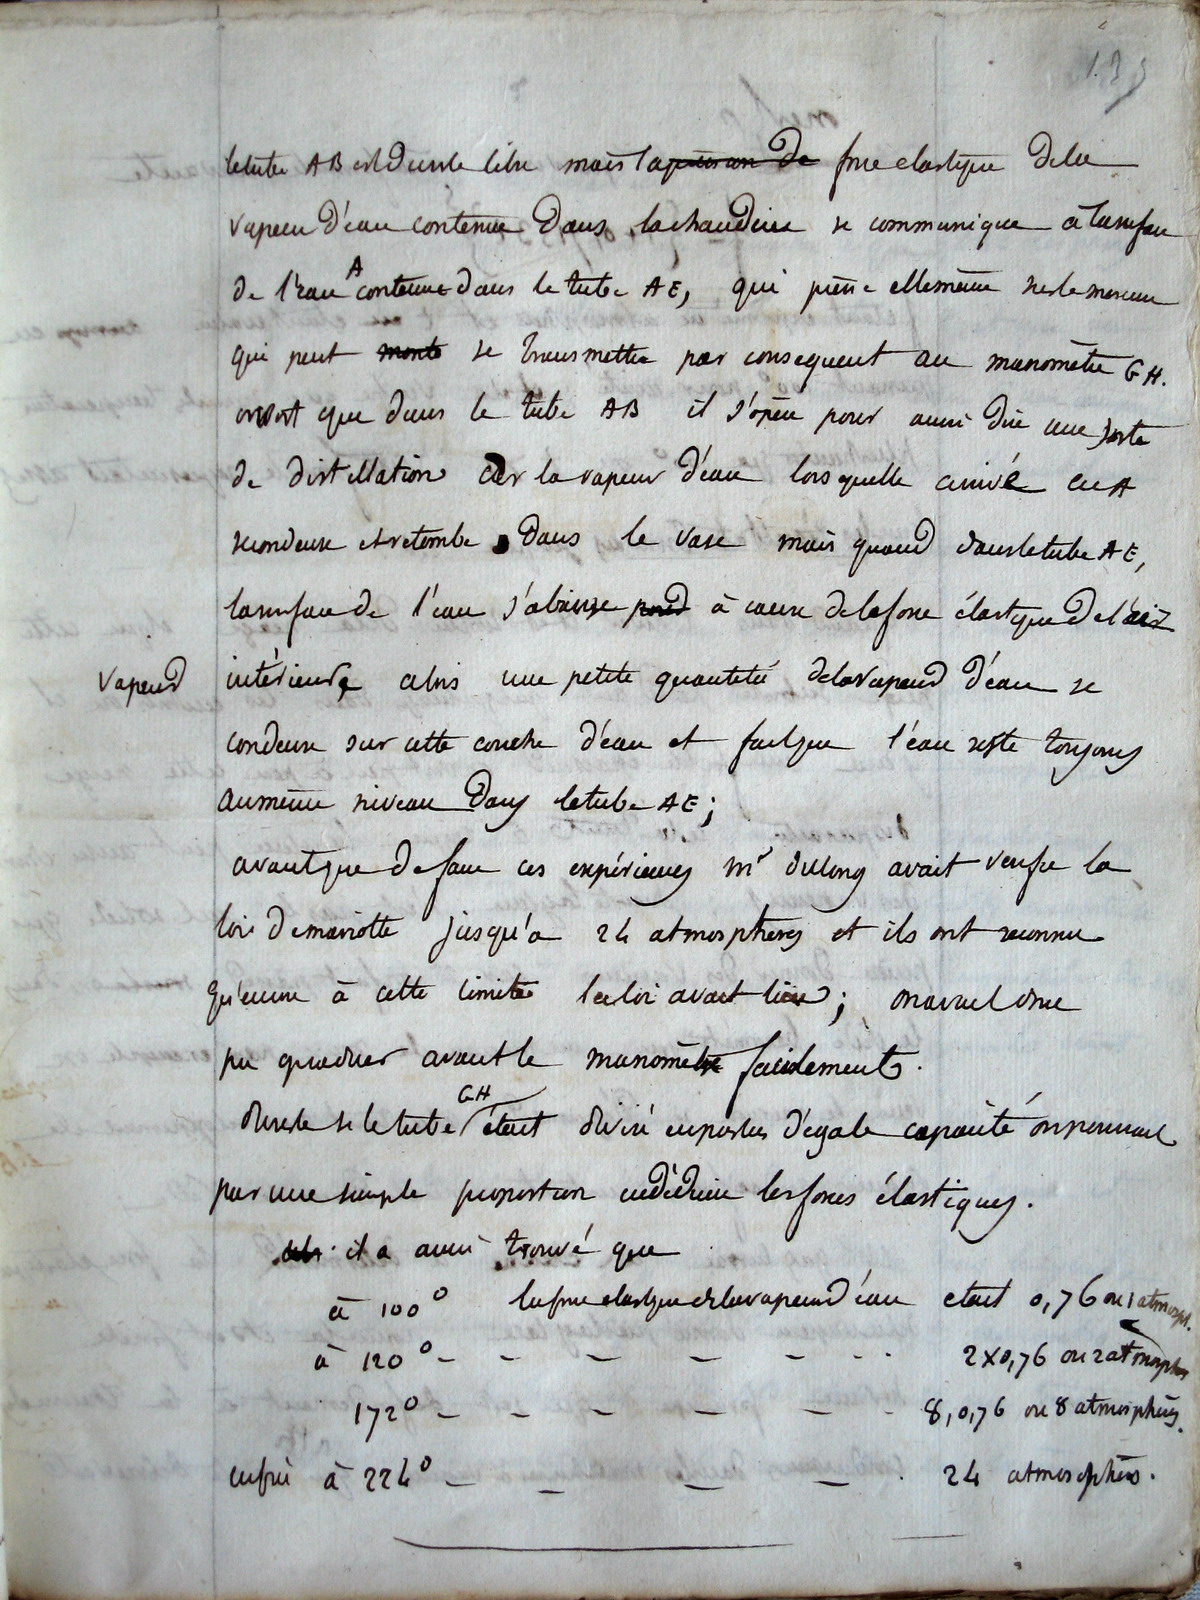 139
le tube AB est dense libre mais la pression de force elastique de la
vapeur d'eau contenue Dans la chaudiere se communique a la surface
de l'eau A contenue dans le tube AE, qui presse elle même sur le mercure
qui peut monte se transmettre par consequent au manomètre GH.
on voit que dans le tube AB il s'opère pour ainsi dire une sorte
de distillation car la vapeur d'eau lorsquelle arrive en A
se condense et retombe Dans le vase mais quand dans le tube AE,
la surface de l'eau s'abaisse à cause de la force élastique de l'air
vapeur intérieure alors une petite quantité de la vapeur d'eau se
condense sur cette couche d'eau et fait que l'eau reste toujours
au même niveau Dans le tube AE;
avant que de faire ces expériences mr dulong avait verifie la
loi de mariotte jusqu'a 24 atmosphères et ils ont reconnu
qu'encore à cette limite la loi avait lieu; on avait donc
pu graduer avant le manomètre facilement.
du reste si le tube GH était divisé en parties d'égale capacité on pouvait
par une simple proportion en déduire les forces élastiques.
il a aussi trouvé que
à 100° la force elastique de la vapeur d'eau etait 0,76 ou 1 atmosph.
à 120° - - - - - - - 2x0,76 ou 2 atmosphes
172° - - - - - - - 8,0,76 ou 8 atmosphères.
enfin à 224° - - - - . 24 atmosphères.